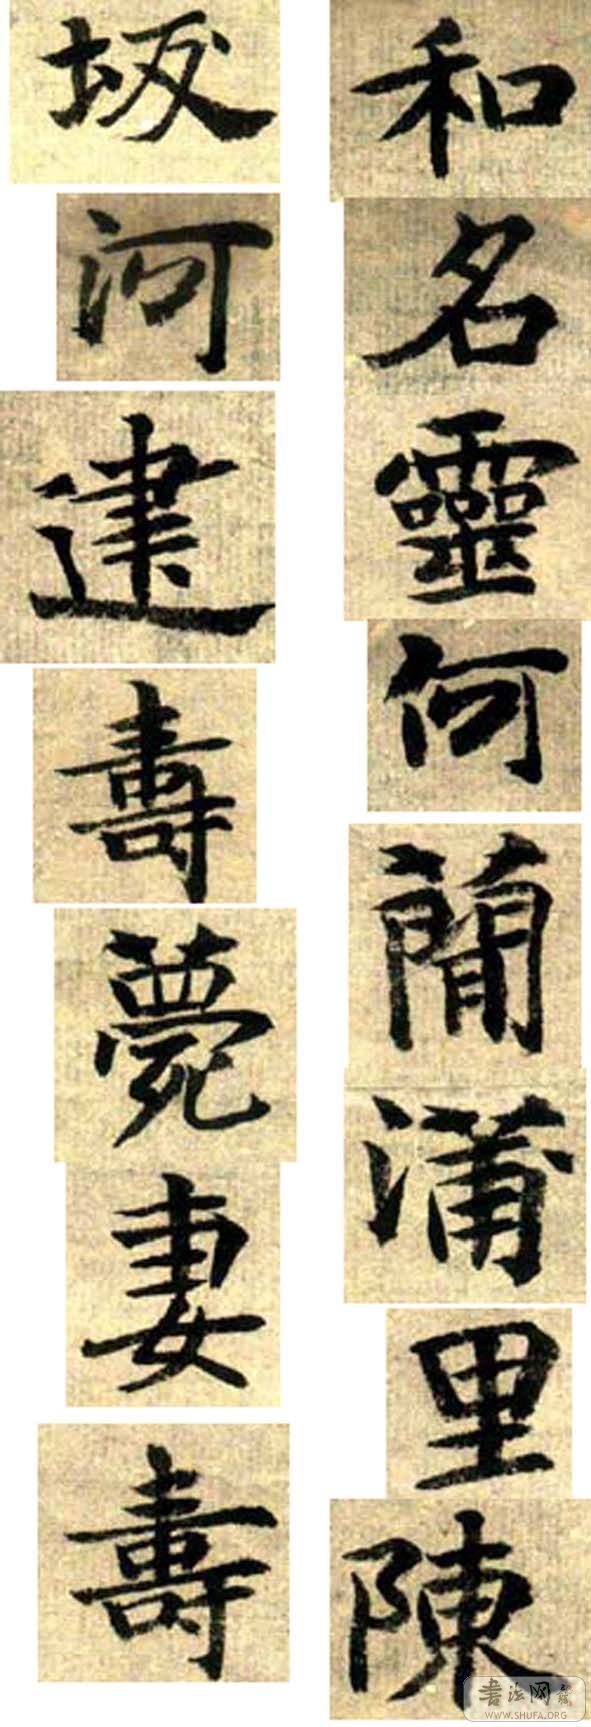 和名靈何蕑蒲里陳
坂河建壽薨妻壽
书法网
WWW.SHUFA.ORG